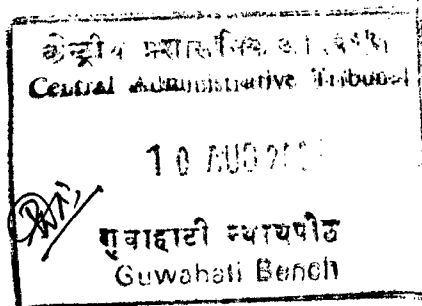 केन्द्रीय
Central Administrative Tribunal
10 AUG
गुवाहाटी न्यायपीठ
Guwahati Bench